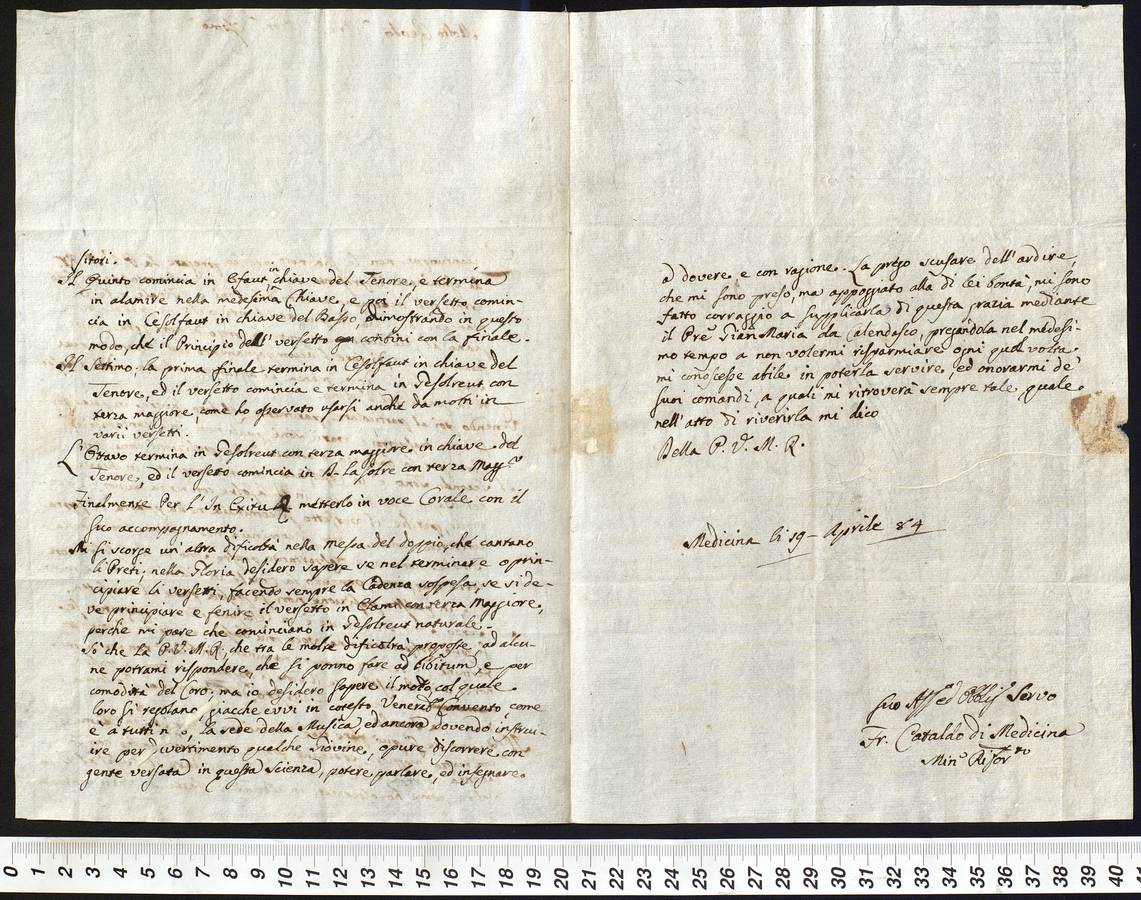 sitori.
Il Quinto comincia in Efaut in chiave del Tenore, e termina
in alamire nella medesima Chiave, e poi il versetto comin-
cia in Cesolfaut in chiave del Basso, dimostrando in questo
modo, che il Principio dell' versetto confini con la finale.
Il Settimo: la prima finale termina in Cesolfaut in chiave del
Tenore, ed il versetto comincia e termina in Gesolreut con
terza maggiore, come ho osservato usarsi anche da molti in
varii versetti.
L'Ottavo termina in Gesolreut con terza maggiore in chiave del
Tenore, ed il versetto comincia in D-La solre con terza Magg.re
Finalmente Per L'In Exitu metterlo in voce Corale con il
suo accompagnamento.
Mi si scorge un'altra dificoltà nella messa del doppio, che cantano
li Preti, nella Gloria desidero sapere se nel terminare o prin-
cipiare li versetti, facendo sempre la Cadenza sospesa, se si de-
ve principiare e fenire il versetto in Elami con terza Maggiore,
perche mi pare che cominciano in Gesolreut naturale.
Sò che La P. V. M. R., che tra le molte dificoltà proposte, ad alcu-
ne potrami rispondere, che si ponno fare ad libitum, e per
comodità del Coro; ma io desidero sapere il modo, col quale
loro si regolano, giacche evvi in cotesto Venerd.o Convento, come
è a tutti n o, la sede della Musica, ed ancora dovendo instru-
ire per divertimento qualche Giovine, opure discorrere con
gente versata in questa scienza, potere parlare, ed insegnare
a dovere e con ragione. La prego scusare dell'ardire,
che mi sono preso, ma appoggiato alla di lei bontà, mi sono
fatto corraggio a supplicarla di questa grazia mediante
il Pre Gian Maria da Calendasco, pregandola nel medesi-
mo tempo a non volermi risparmiare ogni qual volta
mi conoscesse abile in poterla servire, ed onorarmi de'
suoi comandi, a quali mi ritroverà sempre tale, quale
nell'atto di riverirla mi dico
Della P. V. M. R.
Medicina li 19 - Aprile 84
Suo Aff.o ed Obbl.o Servo
Fr. Cataldo di Medicina
Min. Rifor.to
0 1 2 3 4 5 6 7 8 9 10 11 12 13 14 15 16 17 18 19 20 21 22 23 24 25 26 27 28 29 30 31 32 33 34 35 36 37 38 39 40 41